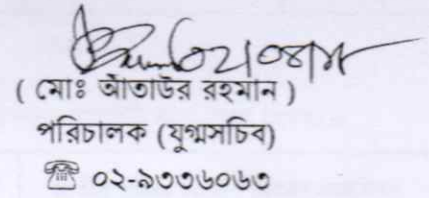 ( মোঃ আতাউর রহমান )
পরিচালক (যুগ্মসচিব)
☎ ০২-৯৩৩৬০৬৩